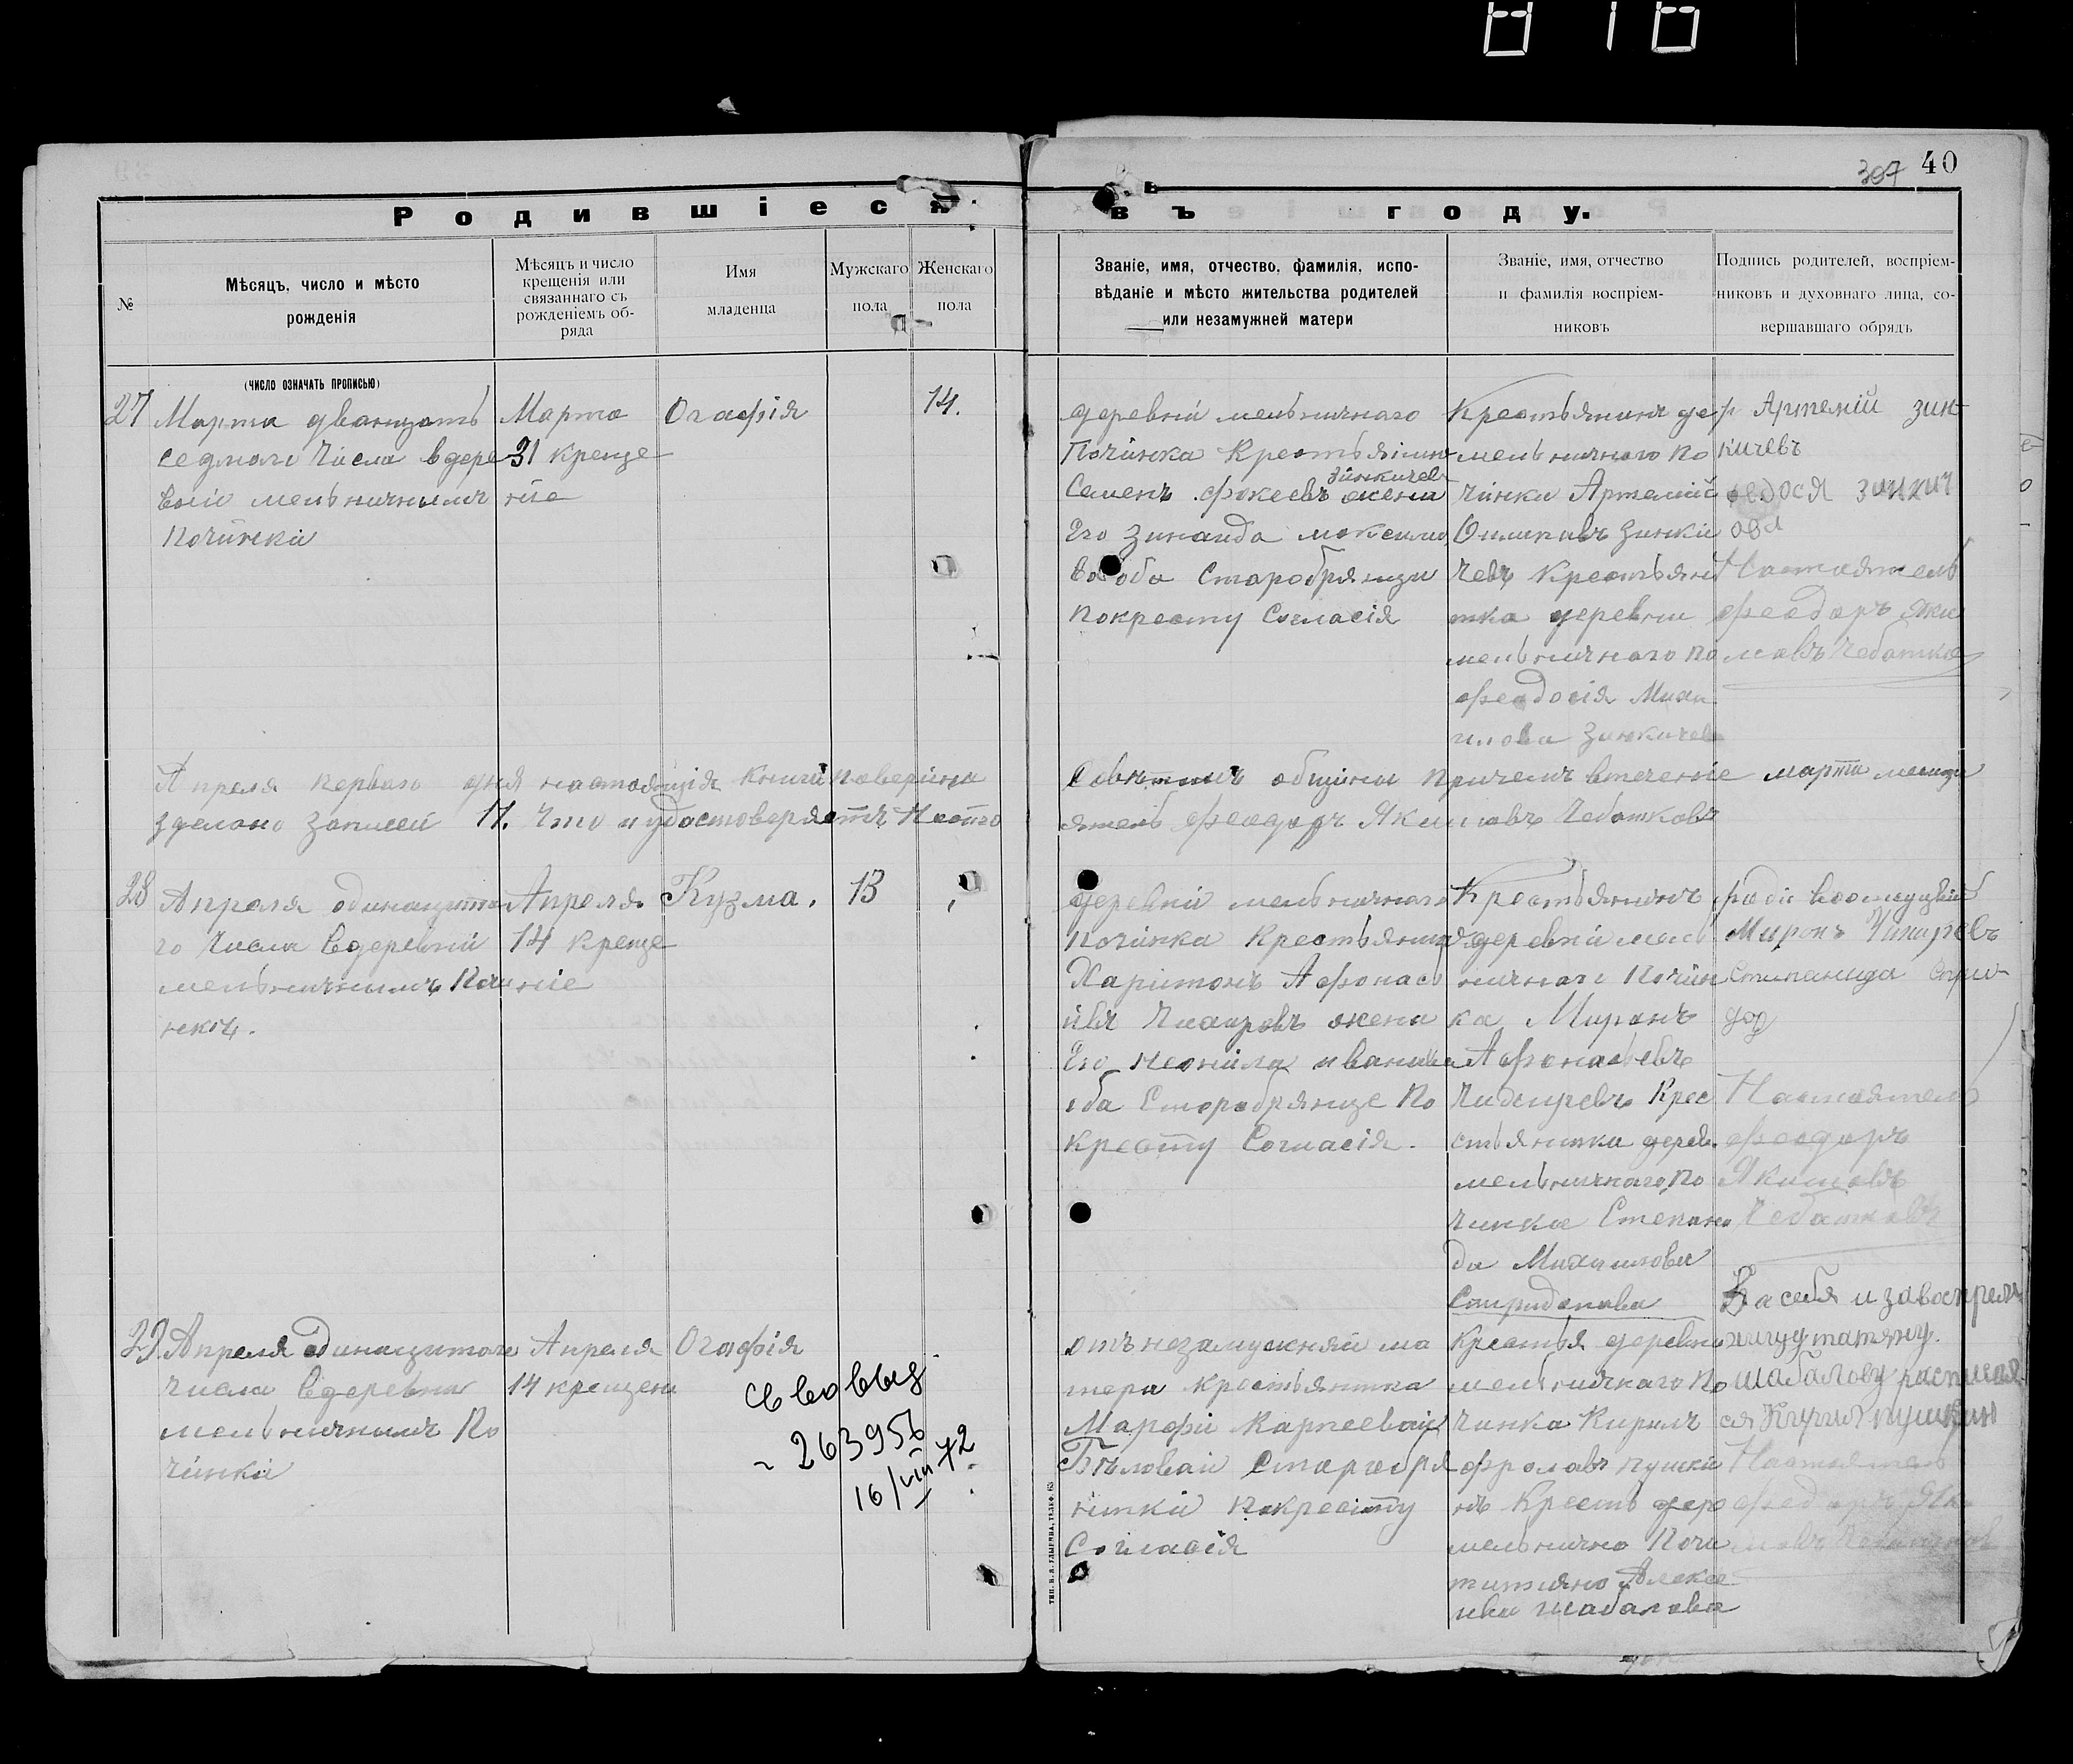 816
307 40
Родившіеся
въ году.
№
Мѣсяцъ, число и мѣсто
рожденія
Мѣсяцъ и число
крещенія или
связаннаго съ
рожденіемъ об-
ряда
Имя
младенца
Мужскаго
пола
Женскаго
пола
Званіе, имя, отчество, фамилія, испо-
вѣданіе и мѣсто жительства родителей
или незамужней матери
Званіе, имя, отчество
и фамилія воспріем-
никовъ
Подпись родителей, воспріем-
никовъ и духовнаго лица, со-
вершавшаго обрядъ
(число означать прописью)
27
Марта дванцать
седмого Числа вдере
вни мельничнымъ
Починки
Марта
31 креще
ніе
Огафія
14.
деревни мельничнаго
Починка Крестьянин
Зинкичев
Семенъ Фокеевъ жена
Его Зинаида максимо
ва оба Старобрянцы
покресту Согласія
Крестьянинъ де
мельничнаго по
чинка Артемій
Зинки
чевъ Крестьян
тка деревни
мельничнаго по
феодосія Миха
илова Зинкичева
Артемій зин
кичевъ
федося зинкич
ова
Настоятель
феодоръ яки
мовъ Чеботков
Апреля первого дня настоящія книги поверина
Советомъ общины Причемъ втечение марта месица
зделано записей 17. Что и удостоверяетъ Насто
ятель феодоръ Якимовъ Чеботковъ
28
Апреля одинацато
го Числа вдеревни
мельничнымъ Почи
нкъ.
Апреля
14 креще
ніе
Кузма.
13
деревни мельничнаго
починка крестьянинъ
Харитонъ Афонась
ивъ жена
Его Неонила иванива
оба Старобрянце По
кресту Согласія.
Крестьянинъ
деревни мель
ничнаго Почин
ка Миронъ
Афонасьевъ
Крес
стьянтка дерев.
мельничнаго По
чинка Степани
да Михаилова
Спиридонова
Миронъ
Степанида Спири
дод
Настоятель
феодоръ
Якимовъ
Чеботковъ
29.
Апреля одинацитого
числа вдеревни
мельничнымъ По
чинки
Апреля
14 крещени
Огафія
Св во выд
263956
16/VIII 42
отъ незамужняй ма
тери крестьянтка
Марфи Карпеевай
Бѣловай Старообря
нтки Покресту
Согласія
Крестья деревни
мельничнаго По
чинка Кирилъ
фроловъ пушки
нъ Кресть дере
мельнично Почи
титияна Алексе
ива шабалова
За себя и завоспреем
ницу татяну
шабалову расписал
ся Кирил пушкин
Настоятель
тип. В. А. Улыбина,